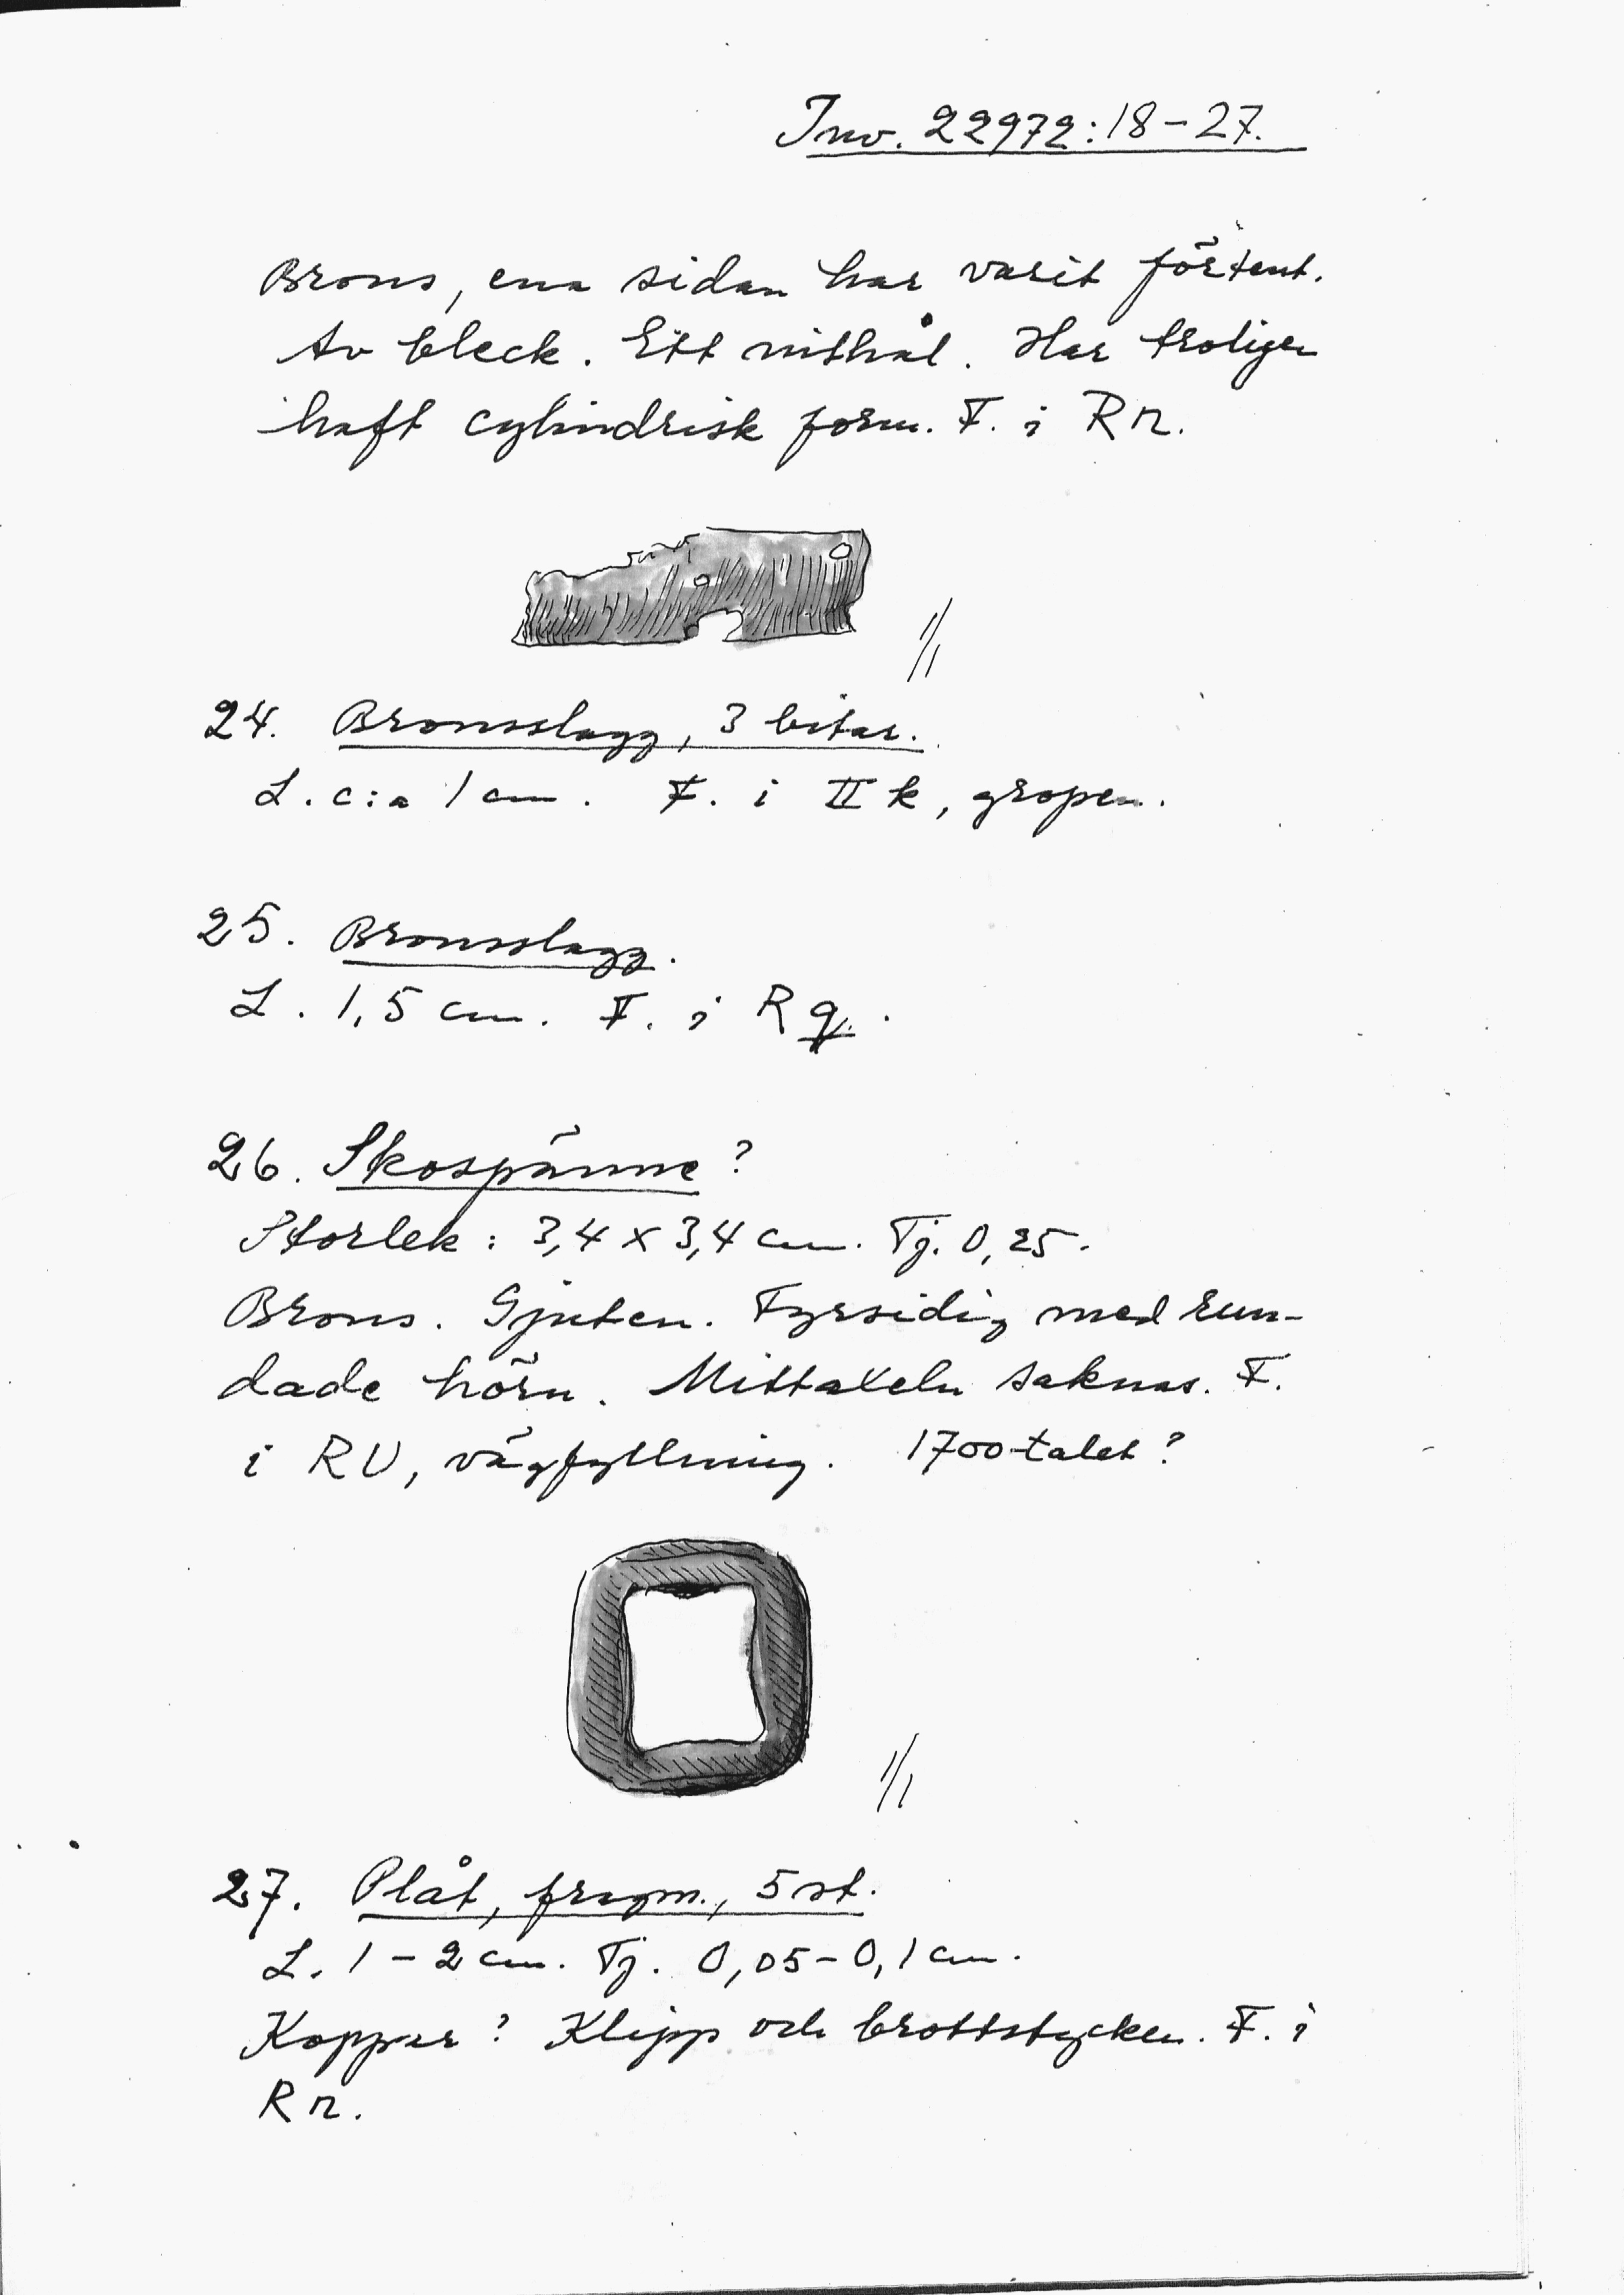 Inv. 22972:18-27.
Brons, ena sidan har varit förtent.
Av bleck. Ett nithål. Har troligen
haft cylindrisk form. F. i R n.
1/1
24. Bronsslagg, 3 bitar.
L. c:a 1 cm. F. i II k, gropen.
25. Bronsslagg.
L. 1,5 cm. F. i R q.
26. Skospänne?
Storlek: 3,4 x 3,4 cm. Tj. 0,25.
Brons. Gjuten. Fyrsidig med run-
dade hörn. Mittaxeln saknas. F.
i R U, vägfyllning. 1700-talet?
1/1
27. Plåt, fragm., 5 st.
L. 1-2 cm. Tj. 0,05-0,1 cm.
Koppar? Klipp och brottstycken. F. i
R n.